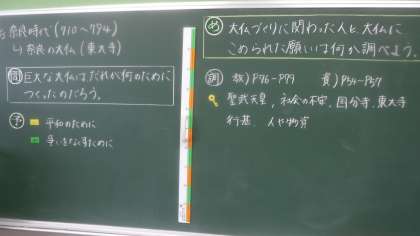 奈良時代(710～794)
↳奈良の大仏(東大寺)
問 巨大な大仏はだれが何のために
つくったのだろう。
予 平和のために
争いをなくすために
め 大仏づくりに関わった人と、大仏に
こめられた願いは何か調べよう。
調 教)P76～P79 資)P54～P57
聖武天皇、社会の不安、国分寺、東大寺
行基、人や物資